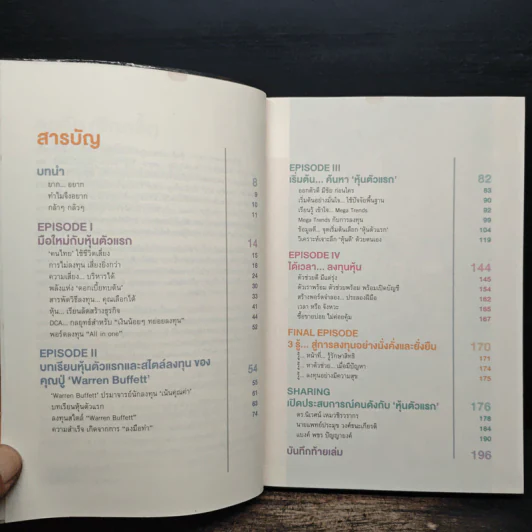 สารบัญ
บทนำ 8
ยาก... อยาก 9
ทำไมจึงอยาก 10
กล้าๆ กลัวๆ 11
EPISODE I
มือใหม่กับหุ้นตัวแรก 14
'คนไทย' ใช้ชีวิตเสี่ยง
การไม่ลงทุน เสี่ยงยิ่งกว่า
ความเสี่ยง... บริหารได้
พลังแห่ง 'ดอกเบี้ยทบต้น'
สารพัดวิธีลงทุน... คุณเลือกได้
หุ้น... เรียนลัดสร้างธุรกิจ
DCA... กลยุทธ์สำหรับ "เงินน้อยๆ ทยอยลงทุน"
พอร์ตลงทุน "All in one"
EPISODE II 54
บทเรียนหุ้นตัวแรกและสไตล์ลงทุน ของ
คุณปู่ 'Warren Buffett'
'Warren Buffett' ปรมาจารย์นักลงทุน 'เน้นคุณค่า'
บทเรียนหุ้นตัวแรก
ลงทุนสไตล์ "Warren Buffett"
ความสำเร็จ เกิดจากการ "ลงมือทำ"
EPISODE III
เริ่มต้น... ค้นหา 'หุ้นตัวแรก' 82
ออกตัวดี มีชัย ก่อนใคร 83
เริ่มต้นอย่างมั่นใจ... ใช้ปัจจัยพื้นฐาน 90
เรียนรู้ เข้าใจ... Mega Trends
Mega Trends กับการลงทุน
ข้อมูลดี... จุดเริ่มต้นเลือก 'หุ้นตัวแรก' 104
วิเคราะห์เจาะลึก 'หุ้นดี' ด้วยตนเอง 119
EPISODE IV
ได้เวลา... ลงทุนหุ้น 144
ตัวช่วยดี มีแต่รุ่ง 145
ตัวเราพร้อม ตัวช่วยพร้อม พร้อมเปิดบัญชี 154
สร้างพอร์ตจำลอง... ประลองฝีมือ 162
เวลา หรือ จังหวะ
ซื้อขายบ่อย ไม่ค่อยคุ้ม 167
FINAL EPISODE
3 รู้... สู่การลงทุนอย่างมั่งคั่งและยั่งยืน 170
รู้... หน้าที่... รู้รักษาสิทธิ 171
รู้... หาตัวช่วย... เมื่อมีปัญหา 174
รู้... ลงทุนอย่างมีความสุข 175
SHARING
เปิดประสบการณ์คนดังกับ 'หุ้นตัวแรก' 176
ดร.นิเวศน์ เหมวชิรวรากร 178
นายแพทย์ประมุข วงศ์ธนะเกียรติ 184
แบงค์ พชร ปัญญายงค์ 190
บันทึกท้ายเล่ม 196